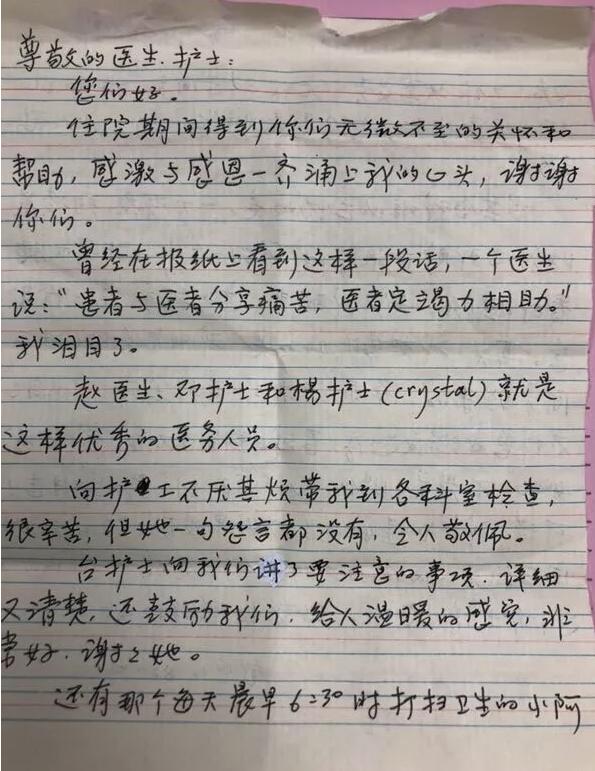 尊敬的医生.护士:
您们好。
住院期间得到你们无微不至的关怀和
帮助, 感激与感恩一齐涌上我的心头, 谢谢
你们。
曾经在报纸上看到这样一段话, 一个医生
说:"患者与医者分享痛苦, 医者定竭力相助。"
我泪目了。
赵医生、邓护士和杨护士(crystal)就是
这样优秀的医务人员。
向护工不厌其烦带我到各科室检查,
很辛苦, 但她一句怨言都没有, 令人敬佩。
台护士向我们讲了要注意的事项. 详细
又清楚, 还鼓励我们. 给人温暖的感觉, 非
常好. 谢谢她。
还有那个每天晨早6:30时打扫卫生的小阿